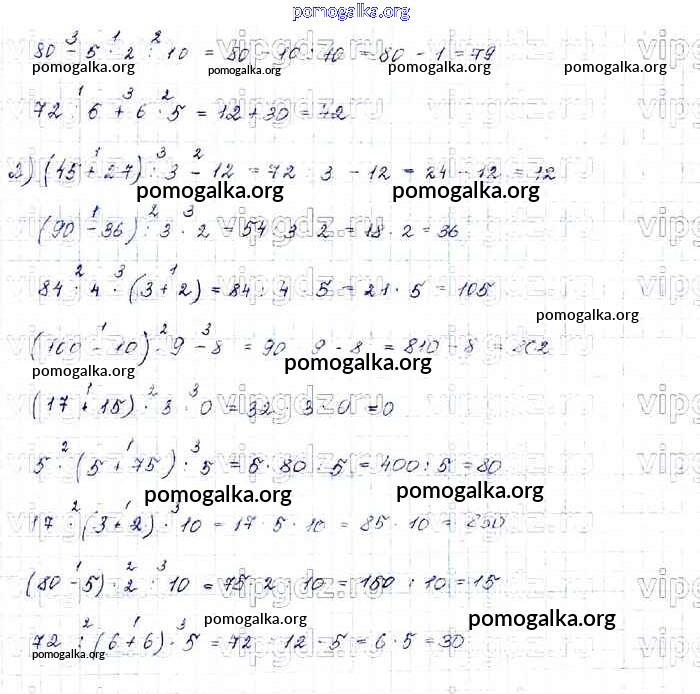 pomogalka.org
80 - 5 · 2 : 10 = 80 - 10 : 10 = 80 - 1 = 79
pomogalka.org pomogalka.org pomogalka.org pomogalka.org
72 : 6 + 6 · 5 = 12 + 30 = 42
2) (45 + 27) : 3 - 12 = 72 : 3 - 12 = 24 - 12 = 12
pomogalka.org pomogalka.org
(90 - 36) : 3 · 2 = 54 : 3 · 2 = 18 · 2 = 36
84 : 4 · (3 + 2) = 84 : 4 · 5 = 21 · 5 = 105
pomogalka.org
(100 - 10) · 9 - 8 = 90 · 9 - 8 = 810 - 8 = 802
pomogalka.org
(17 + 15) · 3 · 0 = 32 · 3 · 0 = 0
5 · (5 + 75) : 5 = 5 · 80 : 5 = 400 : 5 = 80
pomogalka.org pomogalka.org
17 · (3 + 2) · 10 = 17 · 5 · 10 = 85 · 10 = 850
(80 - 5) · 2 : 10 = 75 · 2 : 10 = 150 : 10 = 15
pomogalka.org pomogalka.org
72 : (6 + 6) · 5 = 72 : 12 · 5 = 6 · 5 = 30
pomogalka.org